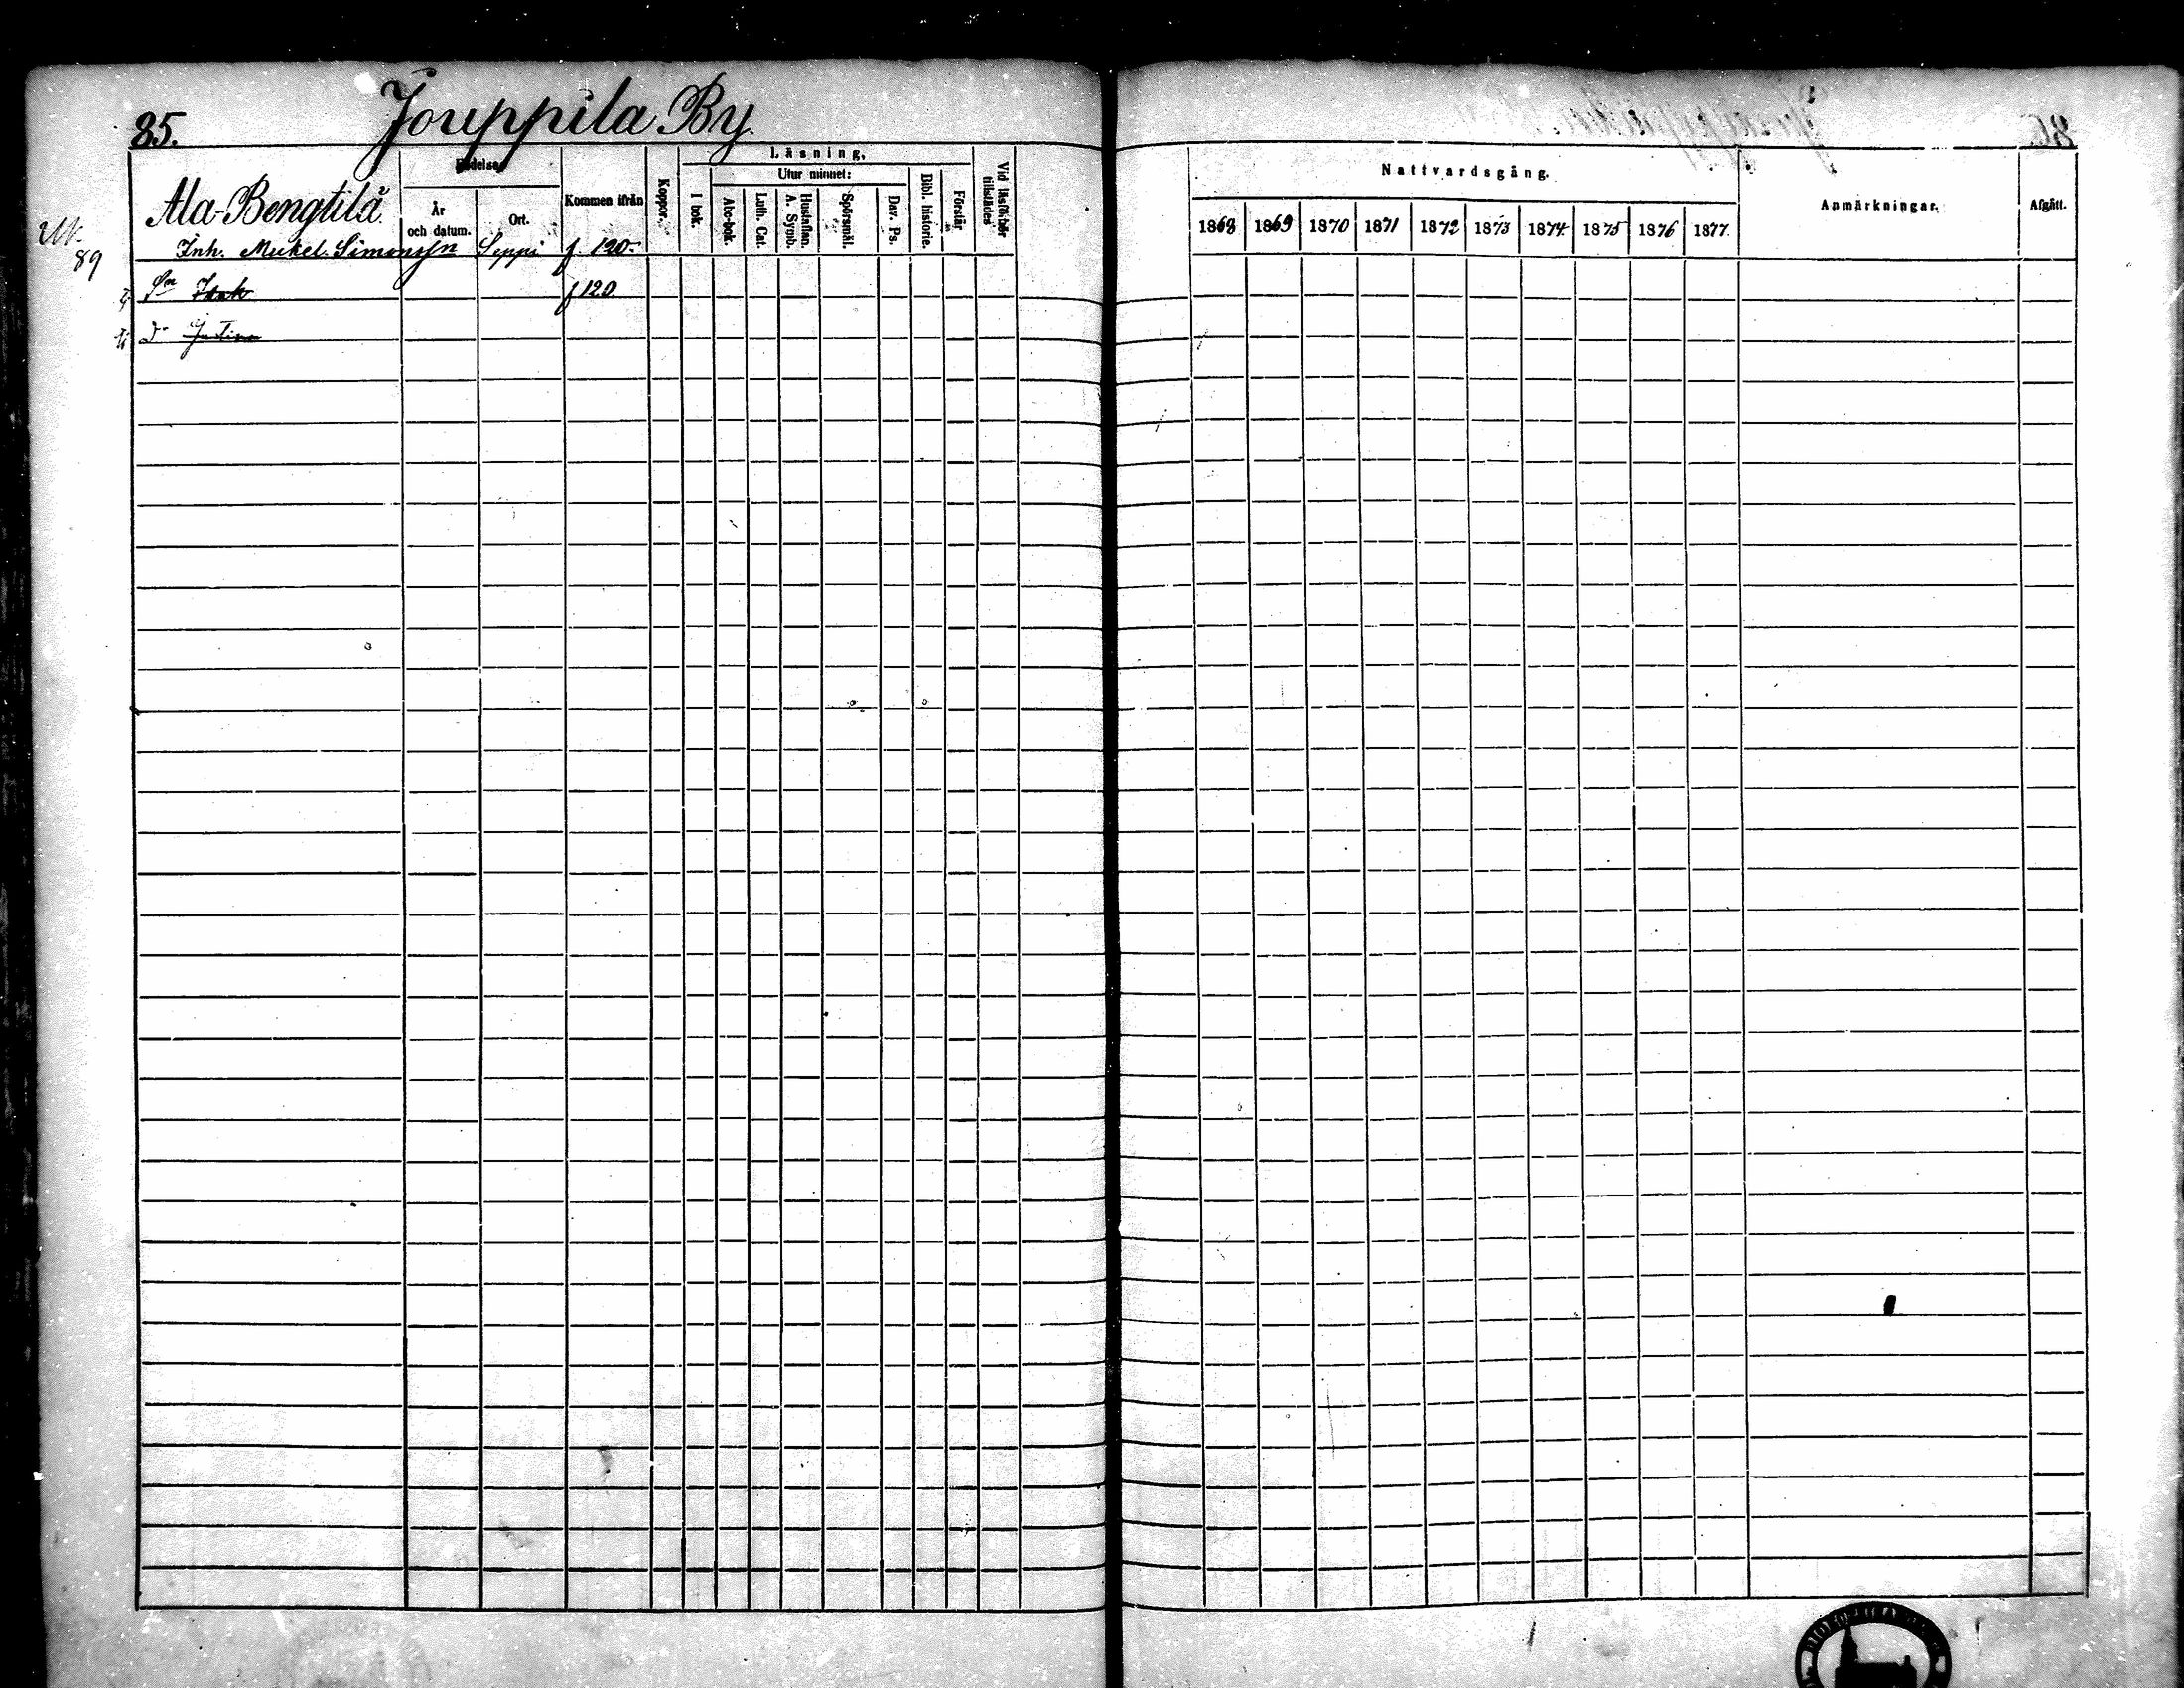 85. Jouppila By
Födelse
Läsning,
Utur minnet:
Ala-Bengtilä
År och datum.
Ort.
Kommen ifrån
Koppor.
I bok.
Abc-bok.
Luth. Cat.
Hustaflan. A. Symb.
Spörsmål.
Dav. Ps.
Bibl. historie.
Förstår
Vid läsförhör tillstädes
Inh. Mickel Simonsson Seppi f. 120.
89
Sn Isak f 120
Dr Justina
Nattvardsgång.
Anmärkningar.
Afgått.
1868 1869 1870 1871 1872 1873 1874 1875 1876 1877.